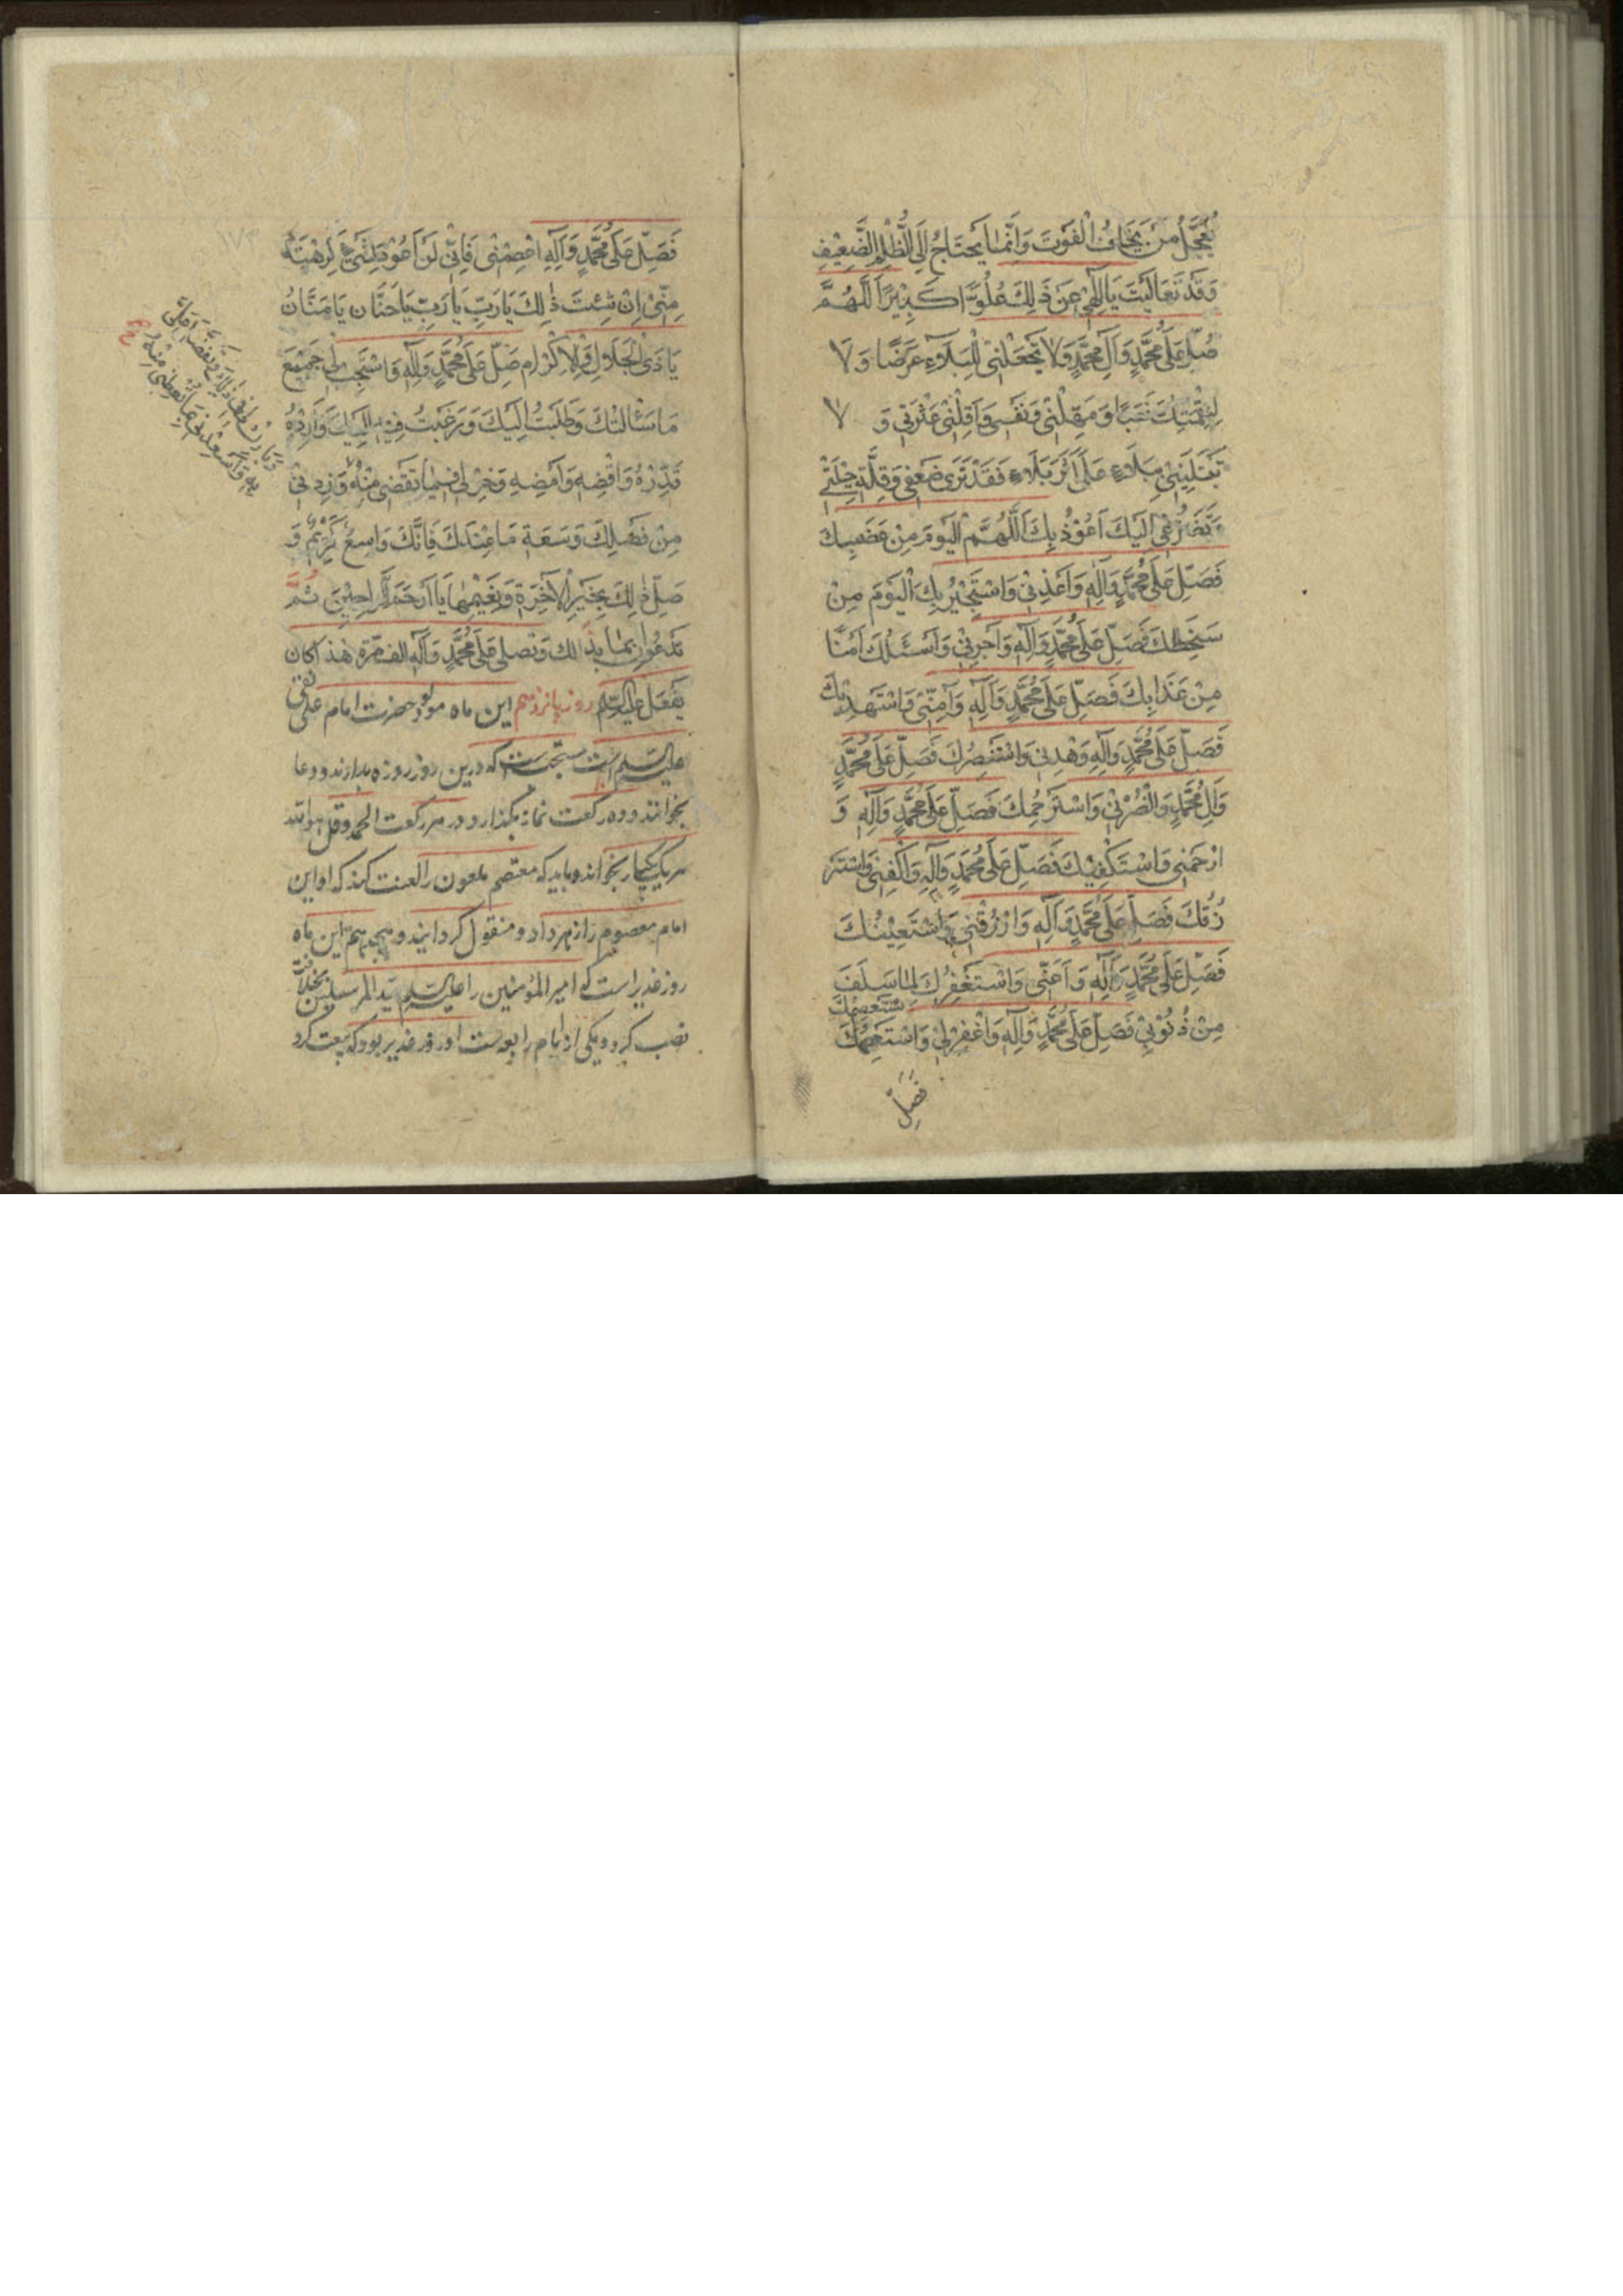 يُعَجِّلُ مَنْ يَخَافُ الْفَوْتَ وَاِنَّمَا يَحْتَاجُ اِلَى الظُّلْمِ الضَّعِيْفِ
وَقَدْ تَعَالَيْتَ يَا اِلٰهِيْ عَنْ ذٰلِكَ عُلُوًّا كَبِيْرًا اَللّٰهُمَّ
صَلِّ عَلَى مُحَمَّدٍ وَآلِ مُحَمَّدٍ وَلَا تَجْعَلْنِيْ لِلْبَلَاۤءِ غَرَضًا وَلَا
لِنِقْمَتِكَ نَصَبًا وَمَهِّلْنِيْ وَنَفِّسْنِي وَاَقِلْنِيْ عَثْرَتِيْ وَ لَا
تَبْتَلِيَنِّيْ بِبَلَاۤءٍ عَلَى اَثَرِ بَلَاۤءٍ فَقَدْ تَرَى ضَعْفِي وَقِلَّةَ حِيْلَتِيْ
وَتَضَرُّعِيْ اِلَيْكَ اَعُوْذُ بِكَ اَللّٰهُمَّ الْيَوْمَ مِنْ غَضَبِكَ
فَصَلِّ عَلَى مُحَمَّدٍ وَآلِهِ وَاَعِذْنِيْ وَاسْتَجِيْرُ بِكَ الْيَوْمَ مِنْ
سَخَطِكَ فَصَلِّ عَلَى مُحَمَّدٍ وَآلِهِ وَاَجِرْنِيْ وَاَسْئَلُكَ اَمْنًا
مِنْ عَذَابِكَ فَصَلِّ عَلَى مُحَمَّدٍ وَآلِهِ وَآمِنِّيْ وَاسْتَهْدِيْكَ
فَصَلِّ عَلَى مُحَمَّدٍ وَآلِهِ وَهْدِنِيْ وَاسْتَنْصِرُكَ فَصَلِّ عَلَى مُحَمَّدٍ
وَآلِ مُحَمَّدٍ وَانْصُرْنِيْ وَاسْتَرْحِمُكَ فَصَلِّ عَلَى مُحَمَّدٍ وَآلِهِ وَ
ارْحَمْنِي وَاسْتَكْفِيْكَ فَصَلِّ عَلَى مُحَمَّدٍ وَآلِهِ وَاكْفِنِيْ وَاسْتَرْ
زُقُكَ فَصَلِّ عَلَى مُحَمَّدٍ وَآلِهِ وَارْزُقْنِيْ وَاسْتَعِيْنُكَ
فَصَلِّ عَلَى مُحَمَّدٍ وَآلِهِ وَاَعِنِّي وَاسْتَغْفِرُكَ لِمَا سَلَفَ
مِنْ ذُنُوْبِيْ فَصَلِّ عَلَى مُحَمَّدٍ وَآلِهِ وَاغْفِرْلِيْ وَاسْتَعْصِمُكَ
فَصَلِّ
فَصَلِّ عَلَى مُحَمَّدٍ وَآلِهِ اعْصِمْنِيْ فَاِنِّيْ لَنْ اَعُوْدَ لِشَيْءٍ كَرِهْتَهُ
مِنِّيْ اِنْ شِئْتَ ذٰلِكَ يَا رَبِّ يَا رَبِّ يَا حَنَّانُ يَا مَنَّانُ
يَا ذَى الْجَلَالِ وَالْاِكْرَامِ صَلِّ عَلَى مُحَمَّدٍ وَآلِهِ وَاسْتَجِبْ لِيْ جَمِيْعَ
مَا سَئَالْتُكَ وَطَلَبْتُ اِلَيْكَ وَرَغِبْتُ فِيْهِ اِلَيْكَ وَاَرِدْهُ
قَدِّرْهُ وَاقْضِهِ وَاَمْضِهِ وَخِرْ لِيْ فِيْمَا تَقْضِي مِنْهُ وَزِدْنِيْ
مِنْ فَضْلِكَ وَسَعَةِ مَا عِنْدَكَ فَاِنَّكَ وَاسِعٌ كَرِيْمٌ وَ
صِلْ ذٰلِكَ بِخَيْرِ الْآخِرَةِ وَنَعِيْمِهَا يَا اَرْحَمَ الرَّاحِمِيْنَ ثُمَّ
تَدْعُوا بِمَا بَدَا لَكَ وَتُصَلِّي عَلَى مُحَمَّدٍ وَآلِهِ الف مرّة هٰذا كان
يَفْعَل عليه السلام روز پانزدهم این ماه مولود حضرت امام علی نقی
علیه السلام است مستحبست که درین روز روزه بدارند و دعا
بخوانند و دو رکعت نماز بگذارد و در هر رکعت الحمد و قل هو الله
هر یک یکبار بخواند و باید که معتصم ملعون را لعنت کند که او این
امام معصوم را زهر داد و مقتول گردانید و هیجدهم این ماه
روز غدیر است که امیر المؤمنین را علیه السلام سید المرسلین بخلافت
نصب کرد و یکی از ایام رابعه است او روز غدیر بود که بیعت کرد
وَبَارِكْ لِيْ فِيْ ذٰلِكَ وَتَفَضَّلْ عَلَيَّ
بِهِ وَاَسْعِدْنِيْ بِمَا تُعْطِيْنِيْ مِنْهُ